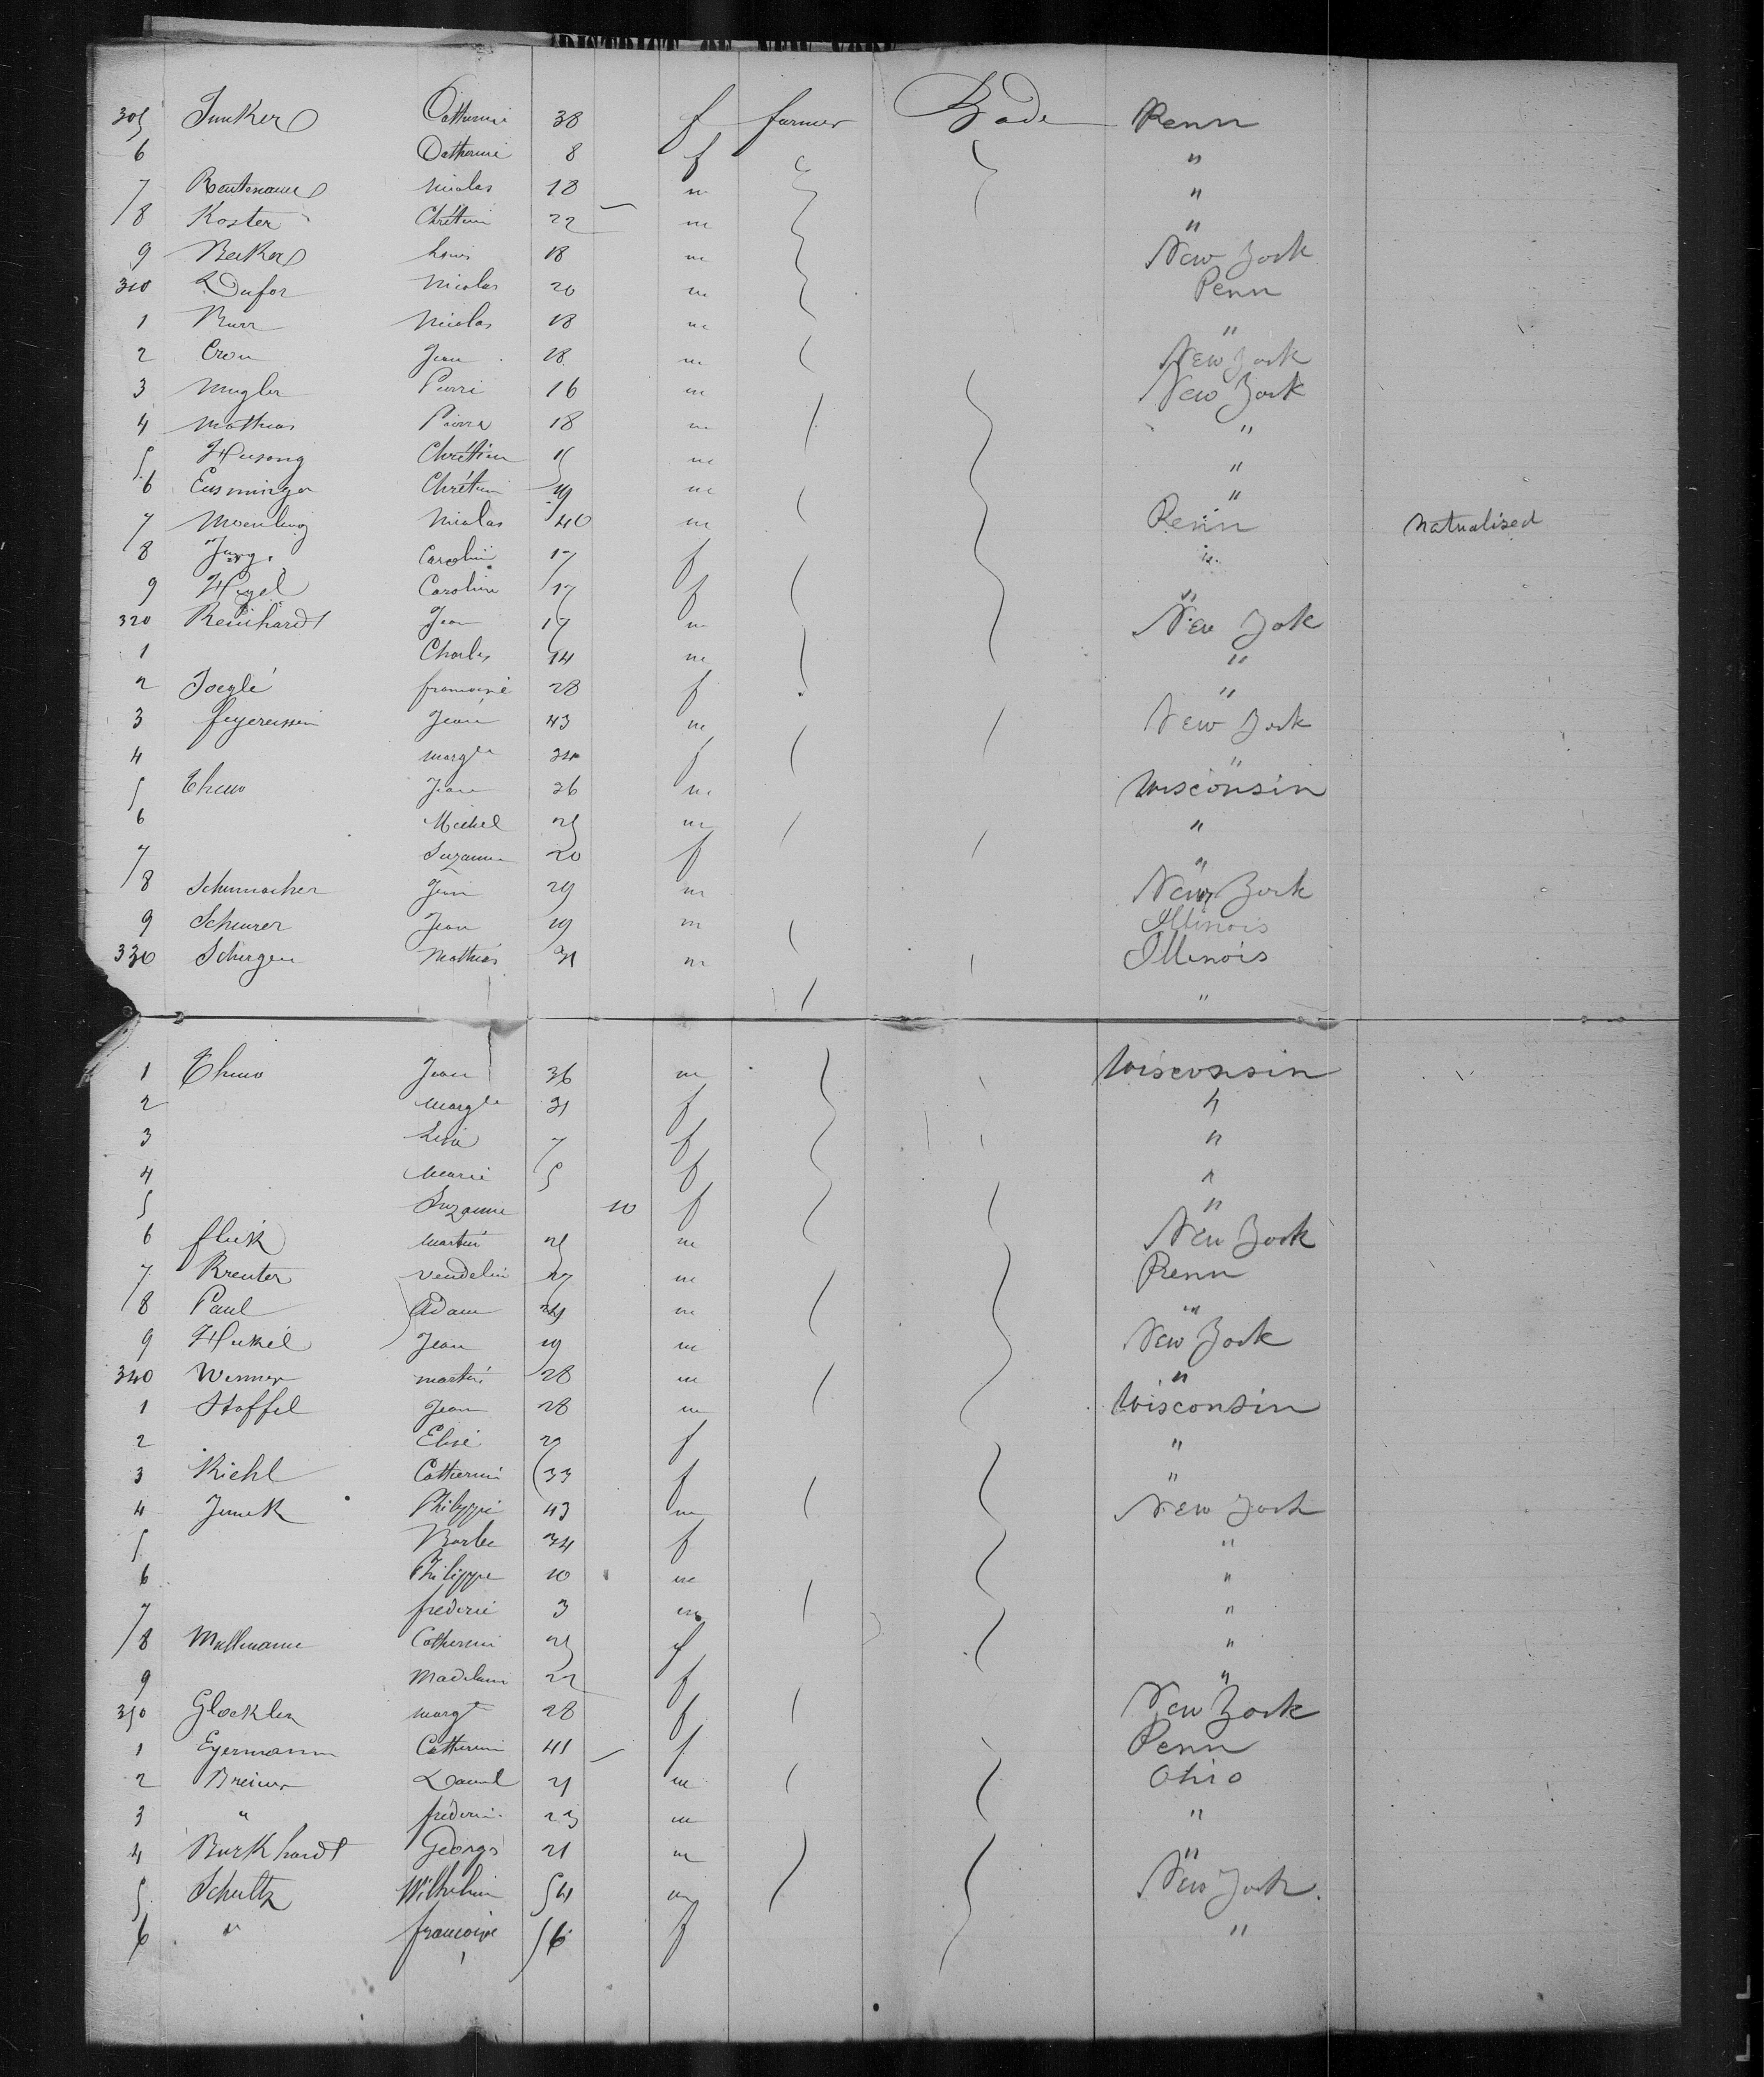 DISTRICT OF NEW YORK
305 Junker Catherine 38 f farmer Bade Penn
6 Catherine 8 f "
7 Nicolas 18 m "
8 Koster Chrétien 22 m "
9 Becker Louis 18 m New York
310 Dufor Nicolas 20 m Penn
1 Burr Nicolas 18 m "
2 Cron Jean 18 m New York
3 Mugler Pierre 16 m New York
4 Mathias Pierre 18 m "
5 Husong Chrétien m "
6 Chrétien 19 m "
7 Nicolas 40 m Penn Natualised
8 Jung Caroline 17 f "
9 Higel Caroline 17 f "
320 Reinhardt Jean 17 m New York
1 Charles 14 m "
2 Joeglé francoise 28 f "
3 Jean 43 m New York
4 margte 34 f "
5 Jean 26 m Wisconsin
6 Michel 25 m "
7 Suzanne 20 f "
8 Schumacher Jean 29 m New York
9 Scheurer Jean 19 m Illinois
330 Schirgen Mathias 31 m Illinois
"
1 Jean 36 m Wisconsin
2 margte 31 f "
3 7 f "
4 Marie 5 f "
5 Suzanne 10 f "
6 flick Martin 25 m New York
7 Kreuter Vendelin 27 m Penn
8 Paul Adam m "
9 Jean 19 m New York
340 Wimmer martin 28 m "
1 Stoffel Jean 28 m Wisconsin
2 Elise f "
3 Kiehl Catherine 33 f "
4 Junck Philippe 43 m New York
5 Barbe 34 f "
6 Philippe 10 m "
7 frederic 3 m "
8 Mullmann Catherine 25 f "
9 Madelaine 22 f "
350 Glockler margte 28 f New York
1 Eyermann Catherine 41 f Penn
2 Breiner Daniel 21 m Ohio
3 " frederic 23 m "
4 Burkhardt George 21 m "
5 Schultz Wilhelm 54 m New York
6 " francoise 56 f "